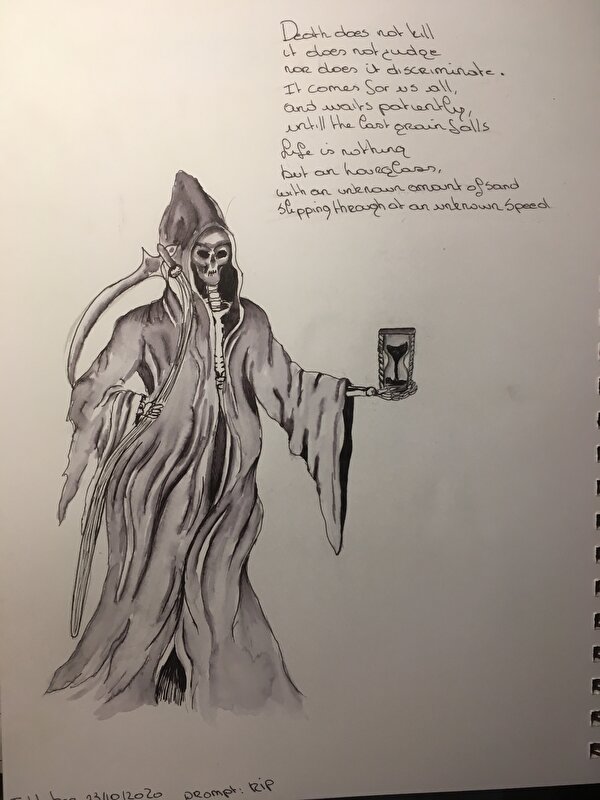 Death does not kill
it does not judge
nor does it discriminate.
It comes for us all,
and waits patiently,
untill the last grain falls
Life is nothing
but an hourglass,
with an unknown amount of sand
slipping through at an unknown speed
23/10/2020 prompt: RIP